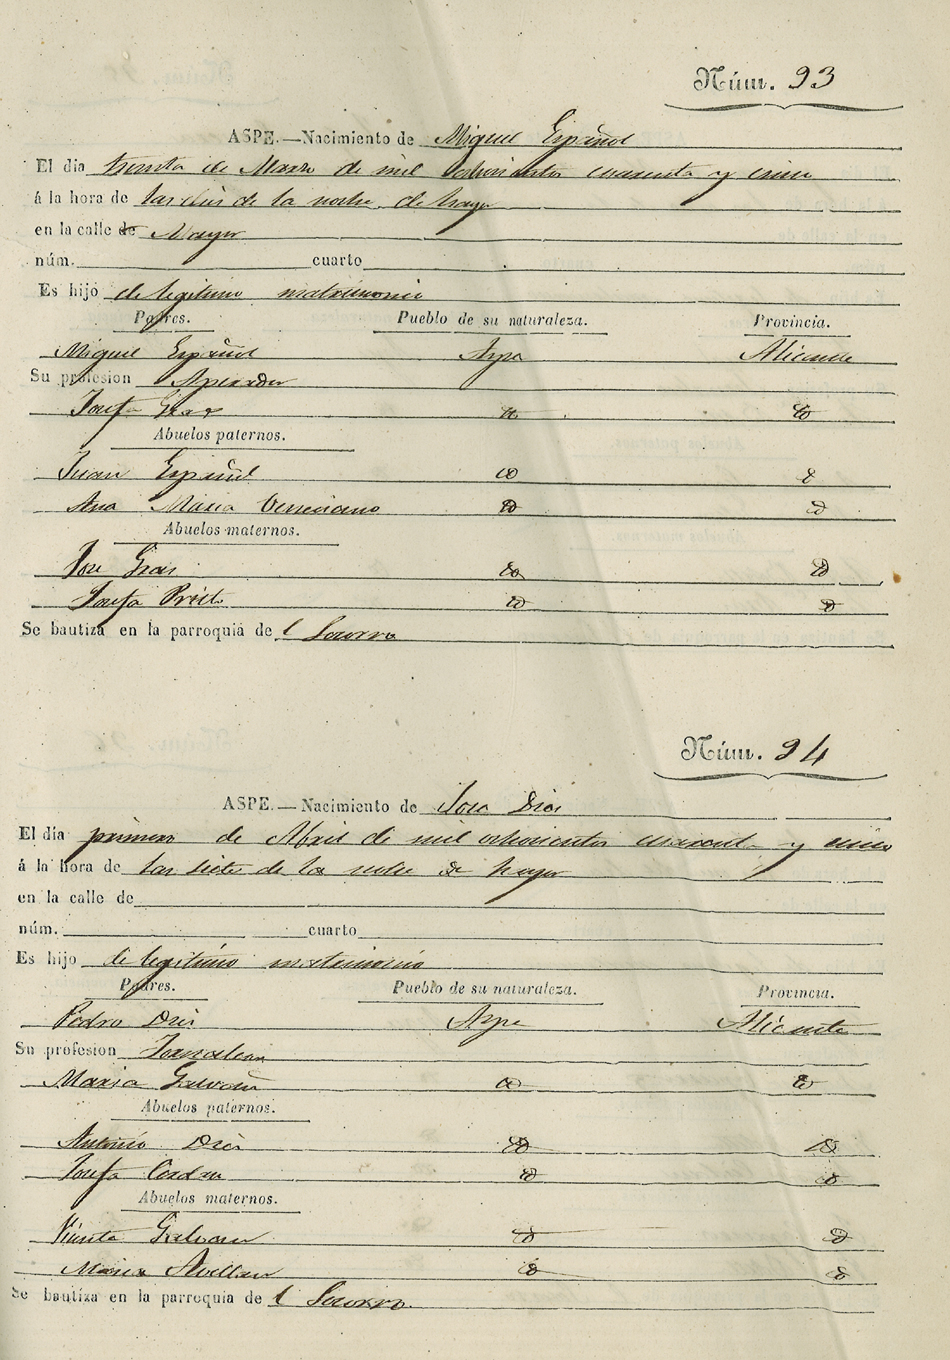 Núm. 93
ASPE.—Nacimiento de Miguel Español
El día treinta de Marzo de mil ochocientos cuarenta y cinco
á la hora de las diez de la noche de hayer
en la calle de Mayor
núm. cuarto
Es hijo de legitimo matrimonio
Padres. Pueblo de su naturaleza. Provincia.
Miguel Español Aspe Alicante
Su profesion Aperador
Josefa Gras id id
Abuelos paternos.
Juan Español id id
Ana Maria id id
Abuelos maternos.
Jose Gras id id
Josefa Prieto id id
Se bautiza en la parroquia de l Socorro
Núm. 94
ASPE.—Nacimiento de Jose Dies
El día primero de Abril de mil ochocientos cuarenta y cinco
á la hora de las siete de la noche de hayer
en la calle de
núm. cuarto
Es hijo de legitimo matrimonio
Padres. Pueblo de su naturaleza. Provincia.
Pedro Dies Aspe Alicante
Su profesion Jornalero
Maria Galvañ id id
Abuelos paternos.
Antonio Dies id id
Josefa id id
Abuelos maternos.
Vicente Galvañ id id
Maria Avellan id id
Se bautiza en la parroquia de l Socorro